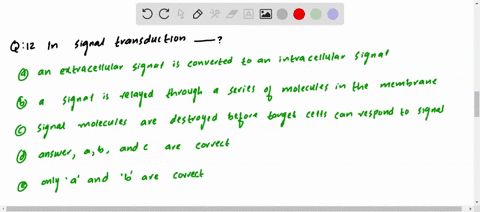 Q:12 In signal transduction ___?
ⓐ an extracellular signal is converted to an intracellular signal
ⓑ a signal is relayed through a series of molecules in the membrane
ⓒ signal molecules are destroyed before target cells can respond to signal
ⓓ answer, a, b, and c are correct
ⓔ only 'a' and 'b' are correct